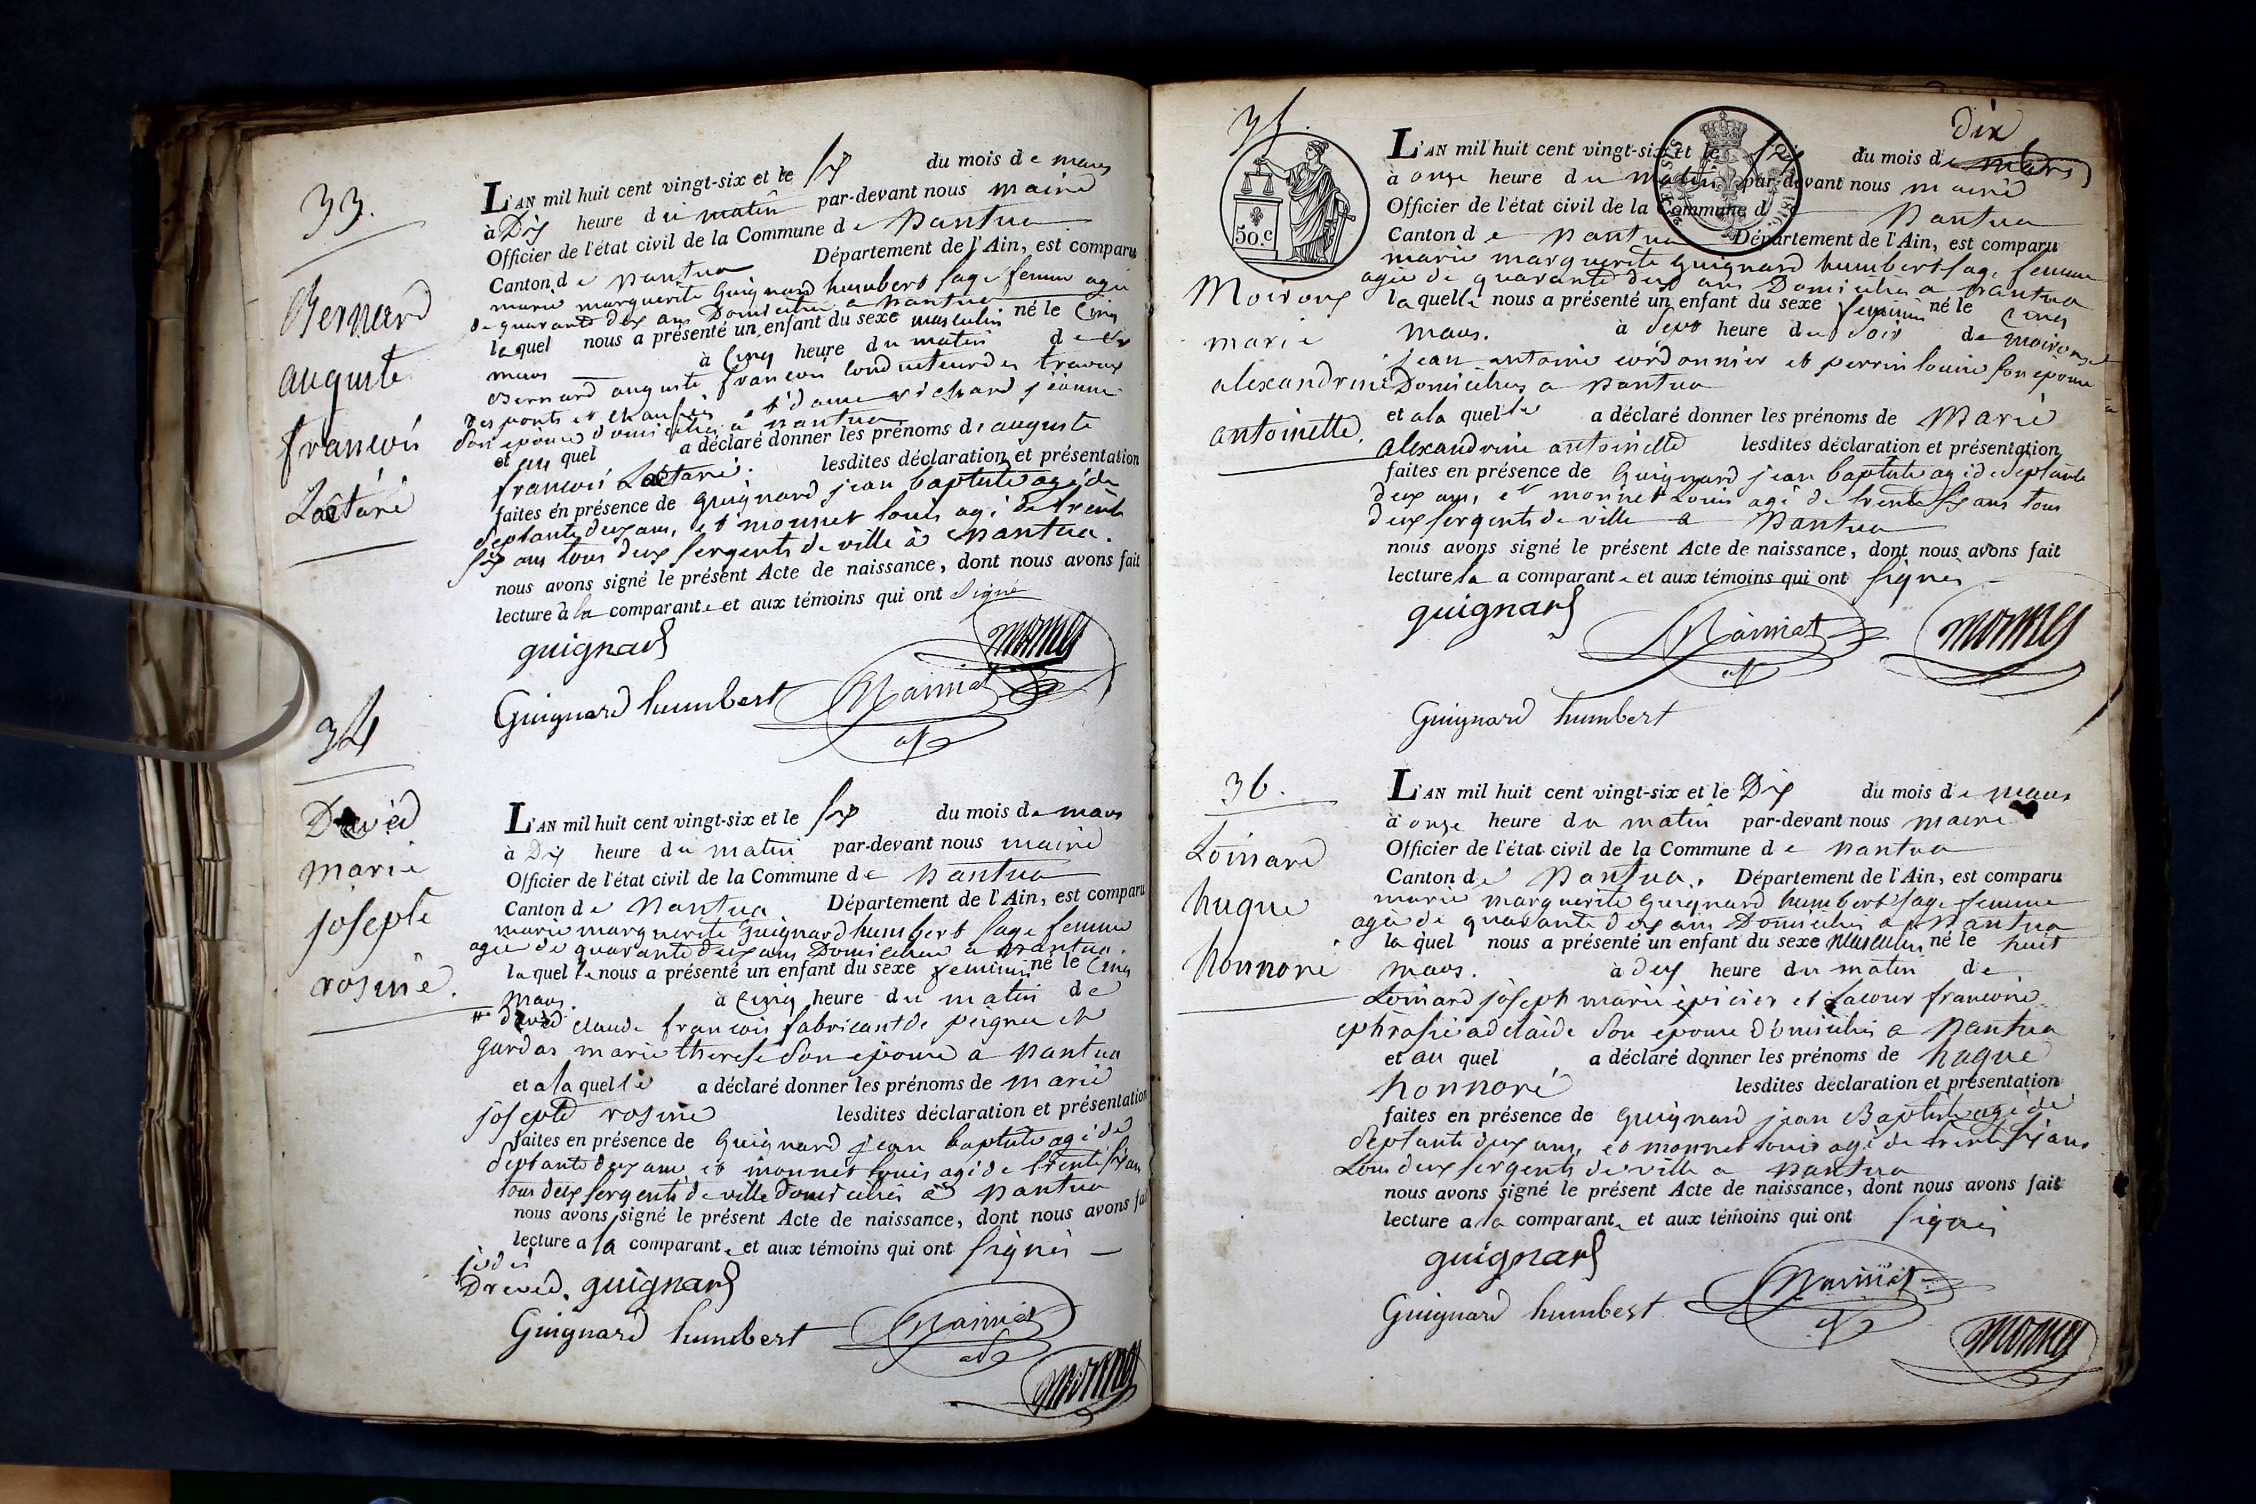 33.
Bernard
auguste
francois
Lactaré
L'AN mil huit cent vingt-six et le six du mois de mars
à Dix heure du matin par-devant nous maire
Officier de l'état civil de la Commune de Nantua
Canton de Nantua Département de l'Ain, est comparu
marie marguerite Guignard humbert sage femme agée
de quarante deux ans Domiciliée a nantua
laquel nous a présenté un enfant du sexe masculin né le Cinq
mars à Cinq heure du matin de Sr
Bernard auguste francois Conducteur des travaux
des ponts et chaussées et dame richard jeanne
son epouse domiciliés a nantua
et au quel a déclaré donner les prénoms de auguste
francois Lactaré. lesdites déclaration et présentation
faites en présence de guignard jean baptiste agé de
septante deux ans, et monnet louis agé de trente
six ans tous deux sergents de ville à Nantua.
nous avons signé le présent Acte de naissance, dont nous avons fait
lecture à la comparante et aux témoins qui ont signé
guignard
monnet
Guignard humbert
34
David
marie
josepte
rosine.
L'AN mil huit cent vingt-six et le six du mois de mars
à Dix heure du matin par-devant nous maire
Officier de l'état civil de la Commune de Nantua
Canton de Nantua Département de l'Ain, est comparu
marie marguerite guignard humbert sage femme
agée de quarante deux ans Domiciliée a nantua.
laquelle nous a présenté un enfant du sexe feminin né le Cinq
mars. à Cinq heure du matin de
claude francois fabricant de peignes et
gardas marie therese son epouse a Nantua
et a la quelle a déclaré donner les prénoms de marie
josepte rosine lesdites déclaration et présentation
faites en présence de Guignard jean baptiste agé de
septante deux ans et monnet louis agé de trente six ans
tous deux sergents de ville domiciliés à Nantua
nous avons signé le présent Acte de naissance, dont nous avons fait
lecture a la comparante et aux témoins qui ont signés
guignard
Guignard humbert
monnet
dix
35.
50.C
Moiroux
marie
alexandrine
antoinette.
L'AN mil huit cent vingt-six et le six du mois de mars
à onze heure du matin par-devant nous maire
Officier de l'état civil de la Commune de Nantua
Canton de Nantua Département de l'Ain, est comparu
marie marguerite Guignard humbert sage femme
agée de quarante deux ans Domiciliée a nantua
laquelle nous a présenté un enfant du sexe feminin né le cinq
mars. à Sept heure du soir de moiroux
jean antoine cordonnier et perrin louise son epouse
Domiciliés a Nantua
et a la quelle a déclaré donner les prénoms de Marie
alexandrine antoinette lesdites déclaration et présentation
faites en présence de Guignard jean baptiste agé de septante
deux ans, et monnet Louis agé de trente six ans tous
deux sergents de ville a Nantua
nous avons signé le présent Acte de naissance, dont nous avons fait
lecture la a comparante et aux témoins qui ont signés
guignard
monnet
Guignard humbert
36.
Loinard
hugue
honnoré
L'AN mil huit cent vingt-six et le Dix du mois de mars
à onze heure du matin par-devant nous maire
Officier de l'état civil de la Commune de Nantua
Canton de Nantua. Département de l'Ain, est comparu
marie marguerite Guignard humbert sage femme
agée de quarante deux ans Domiciliée a Nantua
laquel nous a présenté un enfant du sexe Masculin né le huit
mars. à deux heure du matin de
Loinard joseph marie épicier et Lacour francoise
ephrasie adelaide son epouse domiciliés a Nantua
et au quel a déclaré donner les prénoms de hugue
honnoré lesdites déclaration et présentation
faites en présence de Guignard jean Baptiste agé de
septante deux ans, et monnet louis agé de trente six ans
tous deux sergents de ville a Nantua
nous avons signé le présent Acte de naissance, dont nous avons fait
lecture a la comparante et aux témoins qui ont signés
guignard
Guignard humbert
monnet